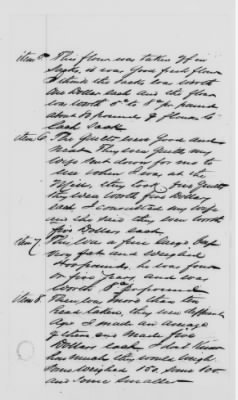 item 5" This flour was taken off in
Sacks, it was Good fresh flour
I think the Sacks was worth
one Dollar each and the flour
was worth 5c to 8c pr pound
about 50 pound of flour to
Each Sack
item 6" The Quilts were Good and
They were Quilts my
wife sent down for me to
use when I was at the
Mill, they took five Quilts
they were worth five Dollars
each I consulted my wife
and she said they were worth
five Dollars each
item 7, This was a fine large hog
very fat and weighed
pounds, he was four
or five years and was
worth pr pound
item 8. There was more than ten
head taken, they were different
ages I made an average
of them and made five
Dollars each, I dont know
how much they would weigh
Some weighed 150 some 100
and some smaller